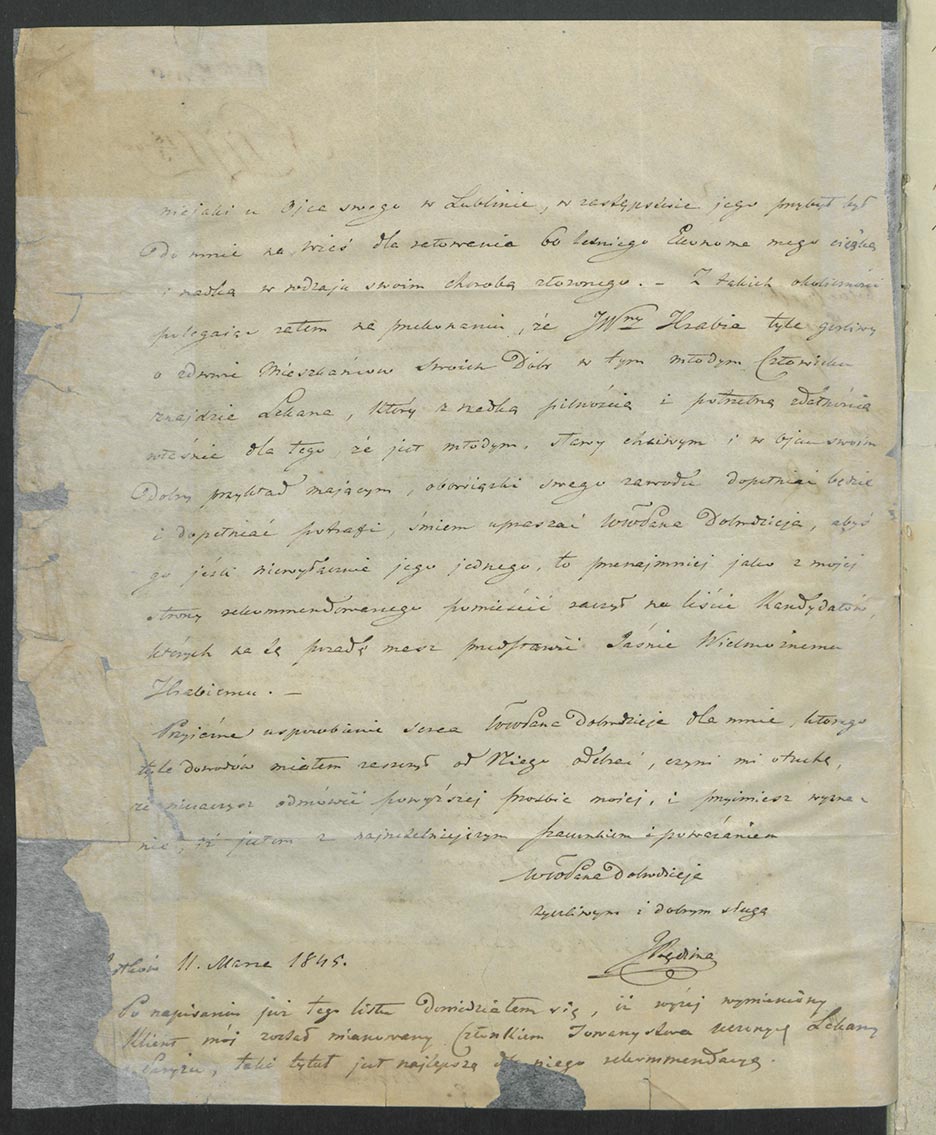 niejaki u Ojca swego w Lublinie, w zastępstwie jego przybył był
do mnie na wieś dla ratowania boleśniego Ekonoma mego ciężką
i rzadką w rodzaju swoim chorobą złożonego. – Z takich okoliczności
polegając zatem na przekonaniu, że JWny Hrabia tyle gorliwy
o zdrowie Mieszkańców swoich Dóbr w tym młodym Człowieku
znajdzie Lekarza, który z rzadką pilnością i potrzebną zdatnością
właśnie dla tego, że jest młodym, sławy chciwym i w Ojcu swoim
dobry przykład mającym, obowiązki swego zawodu dopełniać będzie
i dopełniać potrafi, śmiem upraszać WWPana Dobrodzieja, abyś
go jeśli niewyłącznie jego jednego, to przenajmniej jako z mojej
strony rekommendowanego pomieścić raczył na liście Kandydatów,
których na tę posadę masz przedstawić Jaśnie Wielmożnemu
Hrabiemu. –
Przyjazne usposobienie serca WWPana Dobrodzieja dla mnie, którego
tyle dowodów miałem zaszczyt od Niego odebrać, czyni mi otuchę,
że nieraczysz odmówić powyższej prośbie mojej, i przyimiesz wyzna-
nie, iż jestem z najrzetelniejszym szacunkiem i poważaniem
WWPana Dobrodzieja
życzliwym i dobrym sługą
11. Marca 1845.
Po napisaniu już tego listu dowiedziałem się, iż wyżej wymieniony
Klient mój został mianowany Członkiem Towarzystwa uczonych Lekarzy
w Paryżu, taki tytuł jest najlepszą dla niego rekommendacyą.